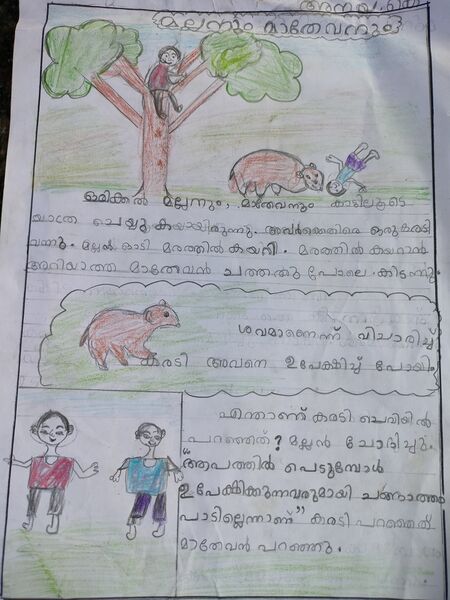 മല്ലനും മാതേവനും
ഒരിക്കൽ മല്ലനും, മാതേവനും കാട്ടിലൂടെ
യാത്ര ചെയ്യുകയായിരുന്നു. അവർക്കെതിരെ ഒരു കരടി
വന്നു. മല്ലൻ ഓടി മരത്തിൽ കയറി. മരത്തിൽ കയറാൻ
അറിയാത്ത മാതേവൻ ചത്തതു പോലെ കിടന്നു.
ശവമാണെന്ന് വിചാരിച്ച്
കരടി അവനെ ഉപേക്ഷിച്ച് പോയി.
എന്താണ് കരടി ചെവിയിൽ
പറഞ്ഞത്? മല്ലൻ ചോദിച്ചു.
"ആപത്തിൽ പെടുമ്പോൾ
ഉപേക്ഷിക്കുന്നവരുമായി ചങ്ങാത്തം
പാടില്ലെന്നാണ്" കരടി പറഞ്ഞത്
മാതേവൻ പറഞ്ഞു.